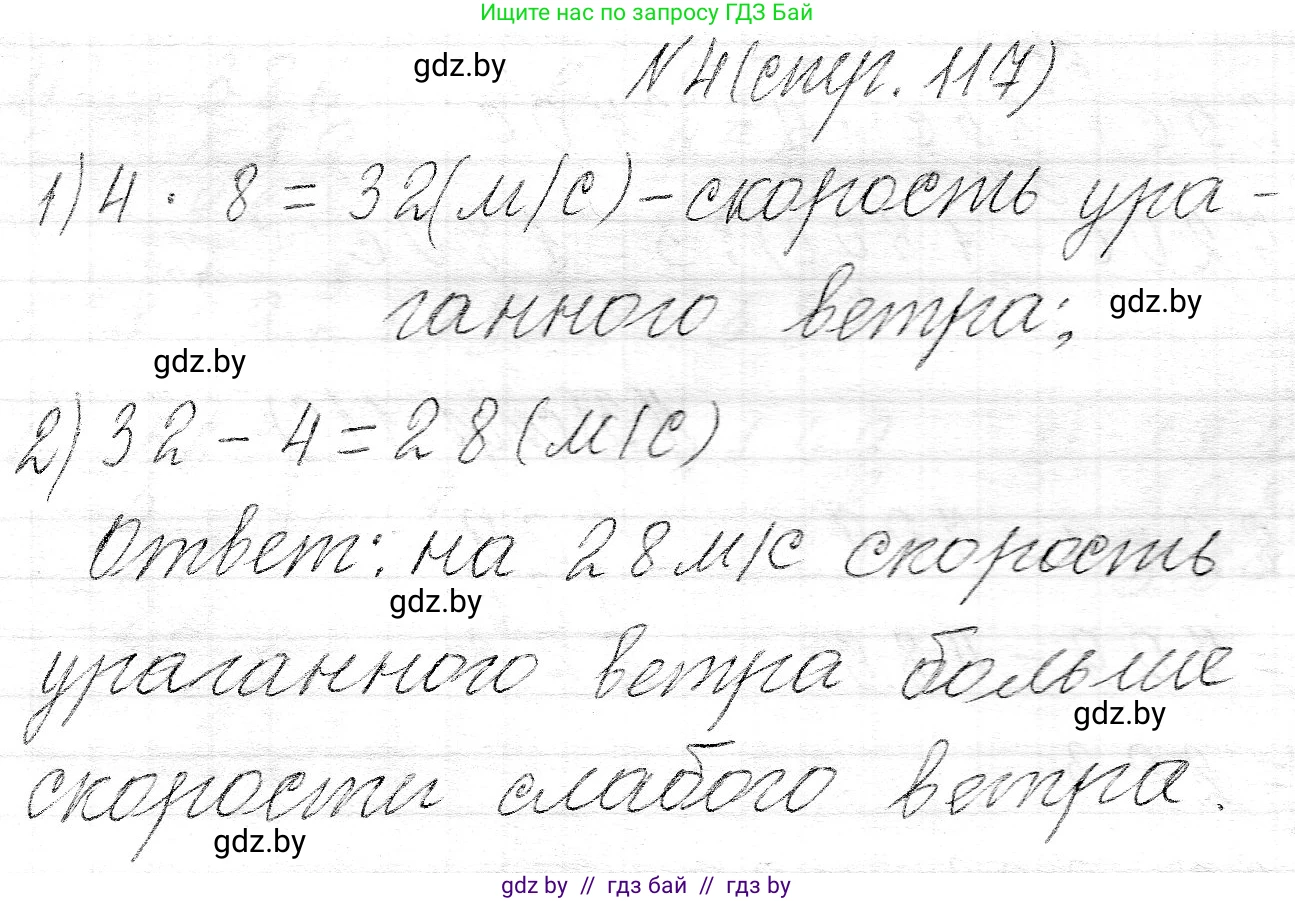 Ищите нас по запросу ГДЗ Бай
gdz.by
N 4 (стр. 117)
1) 4 · 8 = 32 (м/с) - скорость ура-
ганного ветра;
gdz.by
gdz.by
2) 32 - 4 = 28 (м/с)
Ответ: на 28 м/с скорость
gdz.by
ураганного ветра больше
gdz.by
скорости слабого ветра.
gdz.by
gdz.by // гдз бай // гдз by